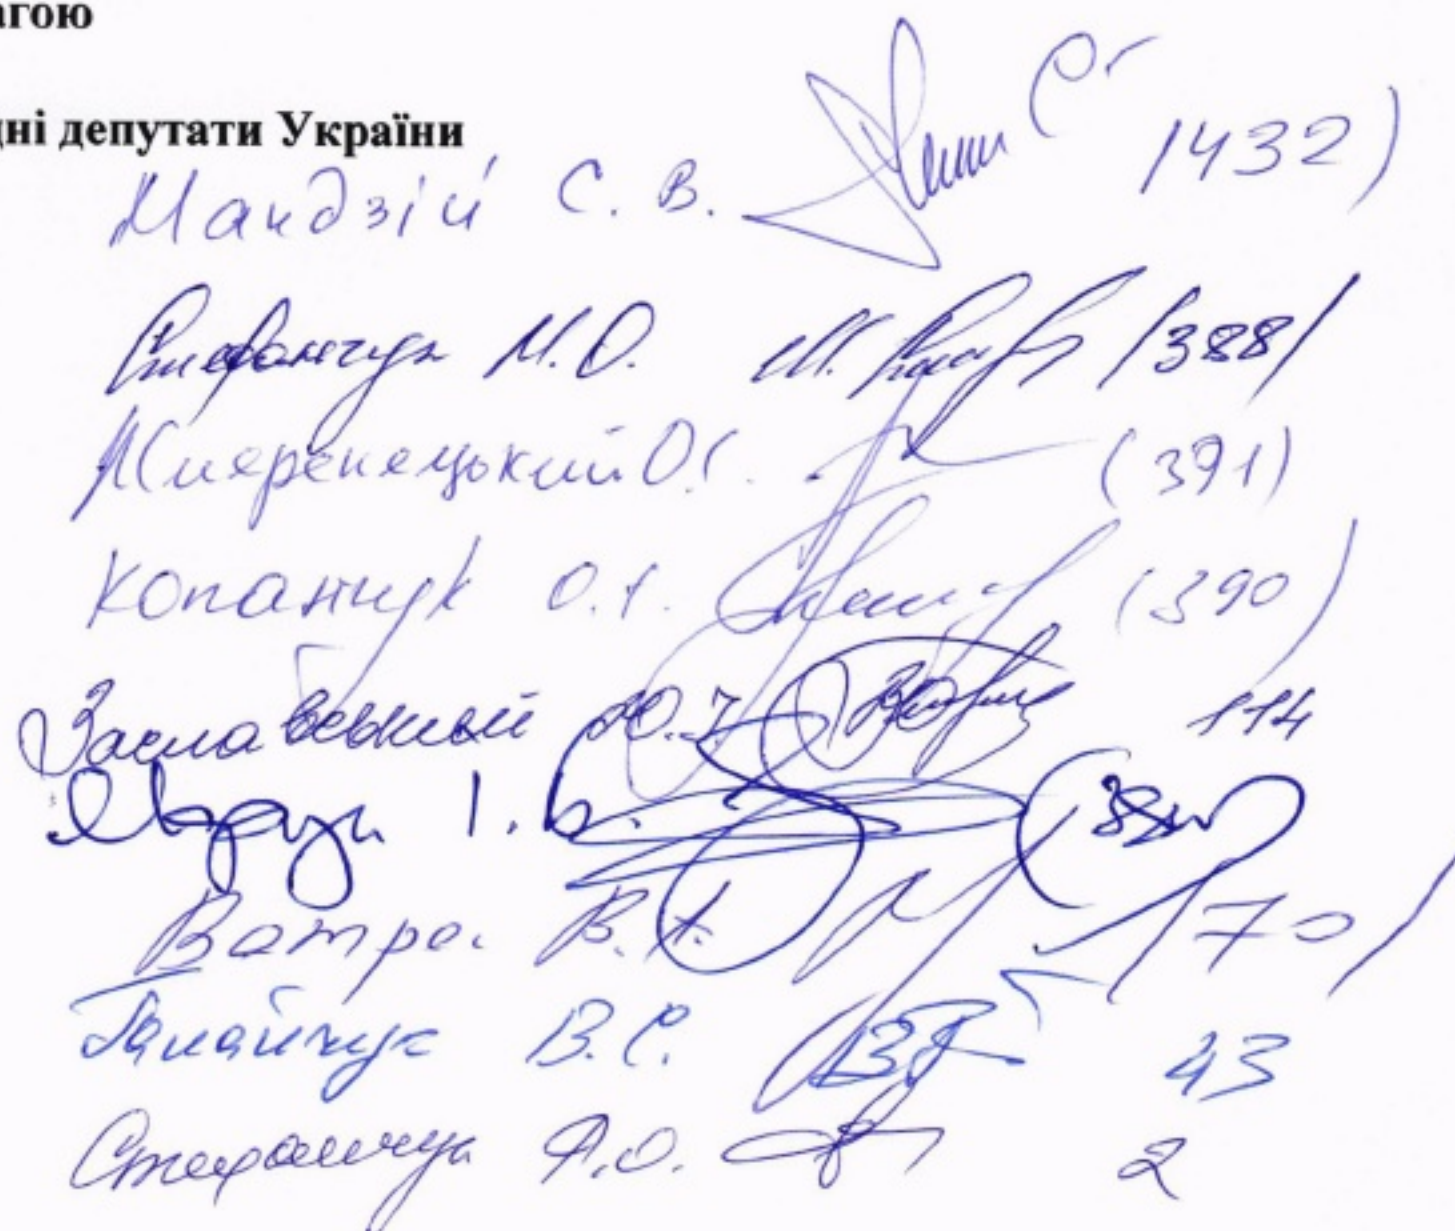 агою
дні депутати України
Мандзій С. В. (432)
Стефанчук М.О. /388/
Мережецький О.С. (391)
Копанчук О.Є. (390)
Заславський Ю.І. 114
І. В.
Ватрас В.А. /70/
Галайчук В.С. 43
Стефанчук Р.О. 2